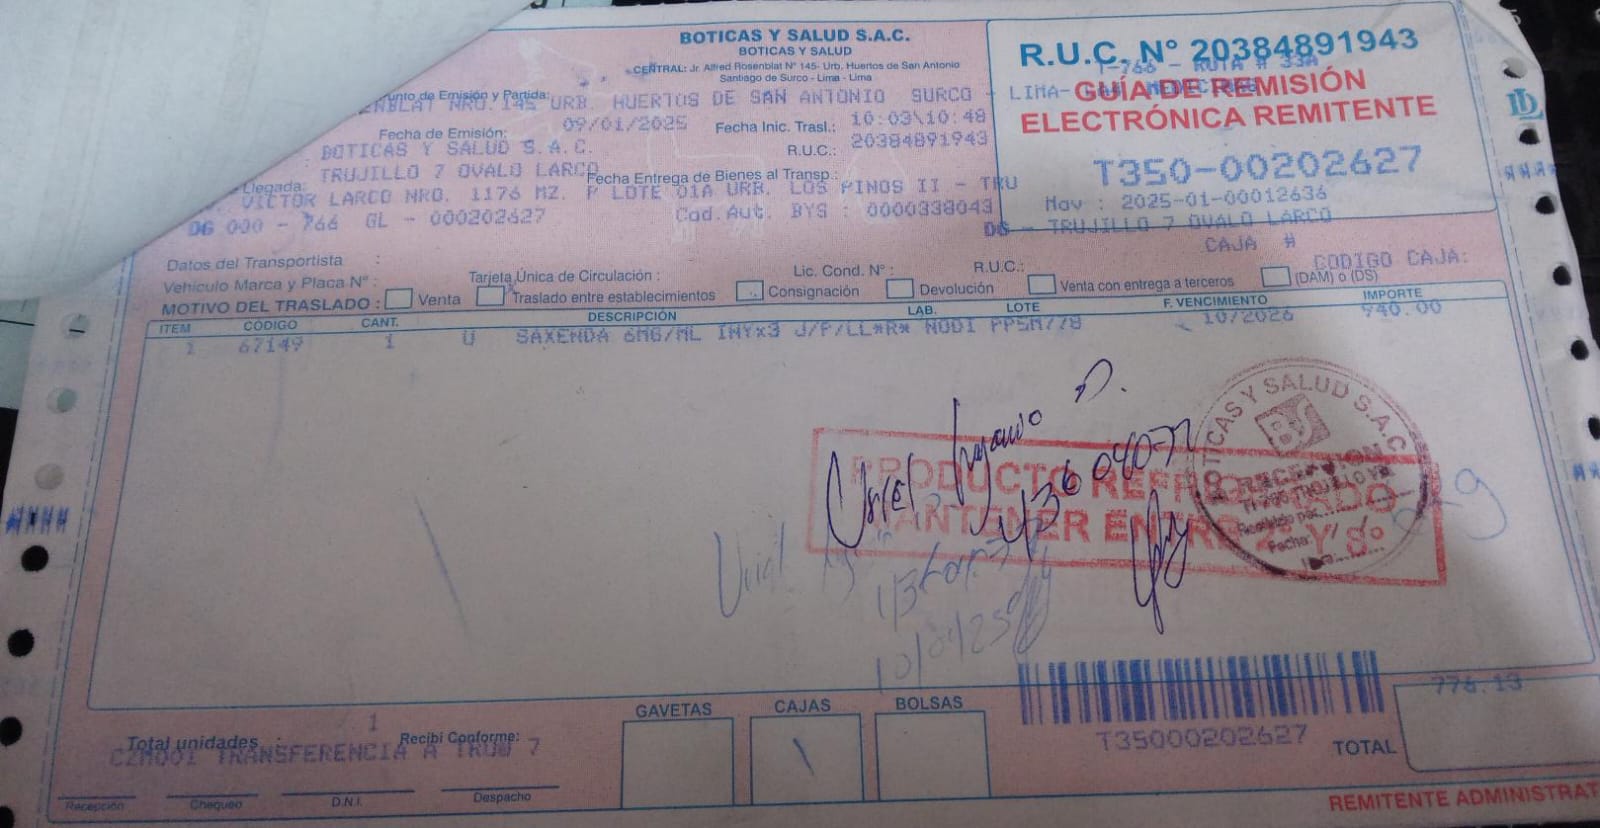 BOTICAS Y SALUD S.A.C.
BOTICAS Y SALUD
CENTRAL: Jr. Alfred Rosenblat N° 145- Urb. Huertos de San Antonio
Santiago de Surco - Lima - Lima
R.U.C. N° 20384891943
T-766 - RUTA # 33A
LIMA-
GUÍA DE REMISIÓN
ELECTRÓNICA REMITENTE
T350-00202627
Mov : 2025-01-00012636
DG - TRUJILLO 7 OVALO LARCO
CAJA #
CODIGO CAJA:
Punto de Emisión y Partida:
NRO. 145 URB. HUERTOS DE SAN ANTONIO SURCO -
Fecha de Emisión: 09/01/2025 Fecha Inic. Trasl.: 10:03\10:48
BOTICAS Y SALUD S.A.C. R.U.C.: 20384891943
TRUJILLO 7 OVALO LARCO Fecha Entrega de Bienes al Transp.:
Llegada: VICTOR LARCO NRO. 1176 MZ. P LOTE 01A URB. LOS PINOS II - TRU
DG 000 - 766 GL - 000202627 Cod. Aut. BYS : 0000338043
Datos del Transportista :
Vehículo Marca y Placa N° : Tarjeta Única de Circulación : Lic. Cond. N° : R.U.C.:
MOTIVO DEL TRASLADO : Venta Traslado entre establecimientos Consignación Devolución Venta con entrega a terceros (DAM) o (DS)
ITEM CÓDIGO CANT. DESCRIPCIÓN LAB. LOTE F. VENCIMIENTO IMPORTE
1 67149 1 U SAXENDA 6MG/ML INYx3 J/P/LL*R* NODI PP5M778 10/2026 940.00
PRODUCTO REFRIGERADO
MANTENER ENTRE 2° Y 8°
BOTICAS Y SALUD S.A.C.
BS
RECEPCION
Recibido por:
Fecha:
776.13
GAVETAS CAJAS BOLSAS
T35000202627
TOTAL
1
Total unidades Recibí Conforme:
TRANSFERENCIA A TRUJ 7
Recepción Chequeo D.N.I. Despacho
REMITENTE ADMINISTRAT